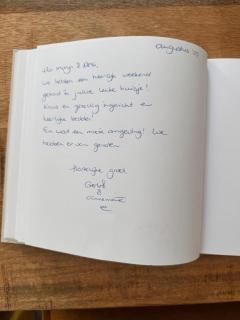 augustus
We hadden een heerlijk weekend
gehad in jullie leuke huisje!
Knus en gezellig ingericht en
heerlijke bedden!
En wat een mooie omgeving! We
hebben ervan genoten
Hartelijke groet
Gerrit
&
Annemarie